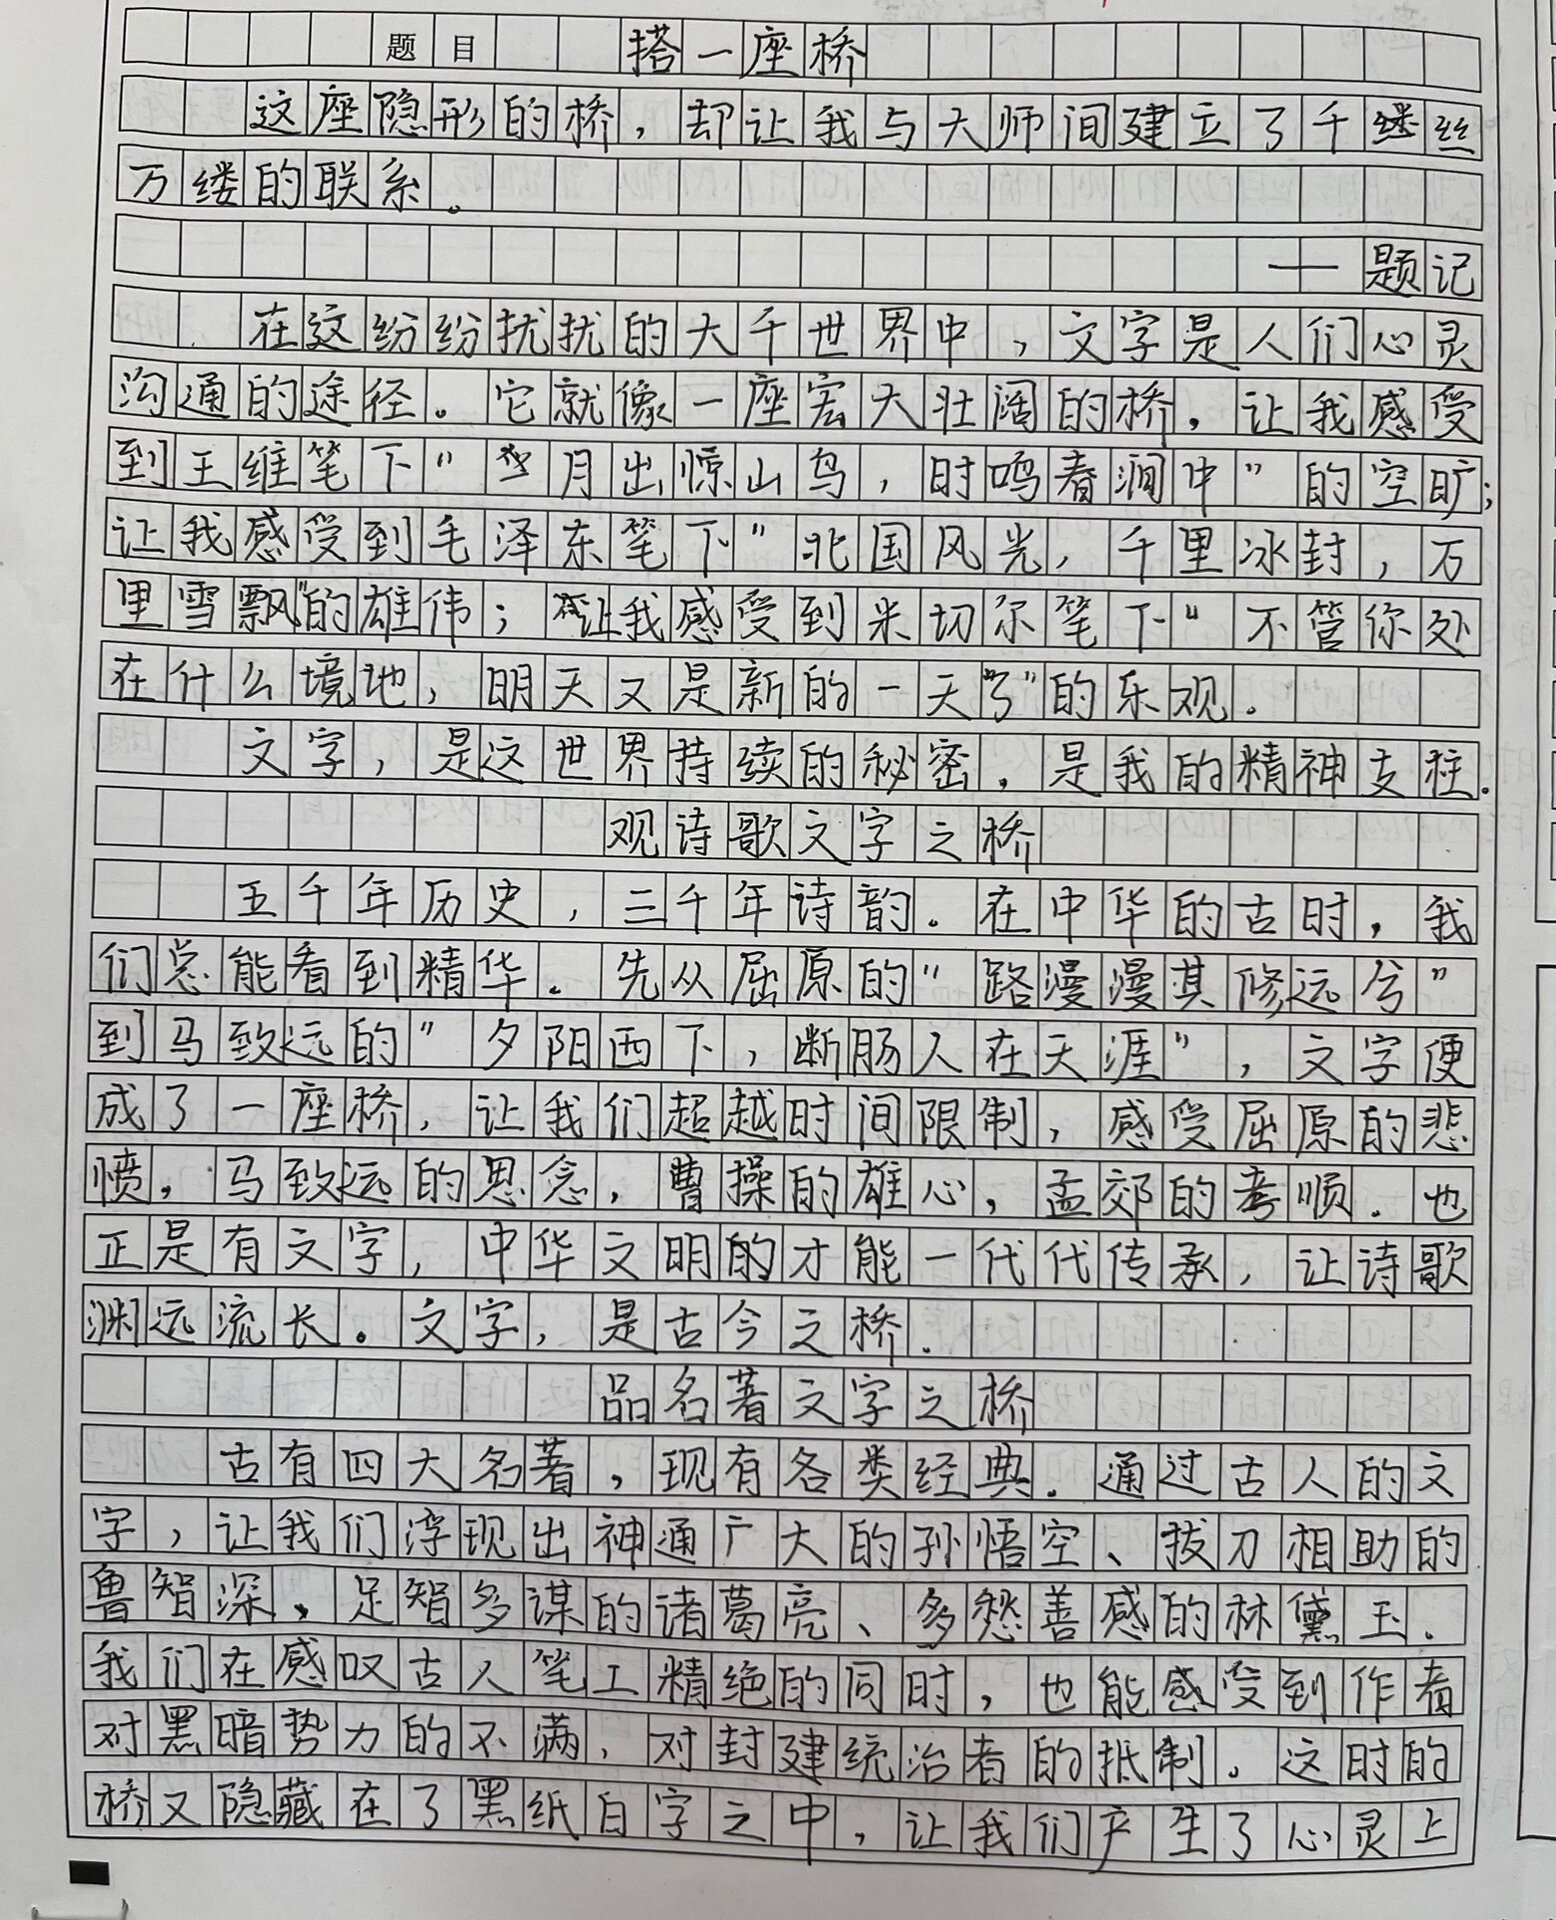 题目 搭一座桥
这座隐形的桥，却让我与大师间建立了千丝
万缕的联系。
——题记
在这纷纷扰扰的大千世界中，文字是人们心灵
沟通的途径。它就像一座宏大壮阔的桥，让我感受
到王维笔下“月出惊山鸟，时鸣春涧中”的空旷；
让我感受到毛泽东笔下“北国风光，千里冰封，万
里雪飘”的雄伟；让我感受到米切尔笔下“不管你处
在什么境地，明天又是新的一天”的乐观。
文字，是这世界持续的秘密，是我的精神支柱.
观诗歌文字之桥
五千年历史，三千年诗韵。在中华的古时，我
们总能看到精华。先从屈原的“路漫漫其修远兮”
到马致远的“夕阳西下，断肠人在天涯”，文字便
成了一座桥，让我们超越时间限制，感受屈原的悲
愤，马致远的思念，曹操的雄心，孟郊的孝顺.也
正是有文字，中华文明的才能一代代传承，让诗歌
渊远流长。文字，是古今之桥.
品名著文字之桥
古有四大名著，现有各类经典.通过古人的文
字，让我们浮现出神通广大的孙悟空、拔刀相助的
鲁智深，足智多谋的诸葛亮、多愁善感的林黛玉.
我们在感叹古人笔工精绝的同时，也能感受到作者
对黑暗势力的不满，对封建统治者的抵制。这时的
桥又隐藏在了黑纸白字之中，让我们产生了心灵上